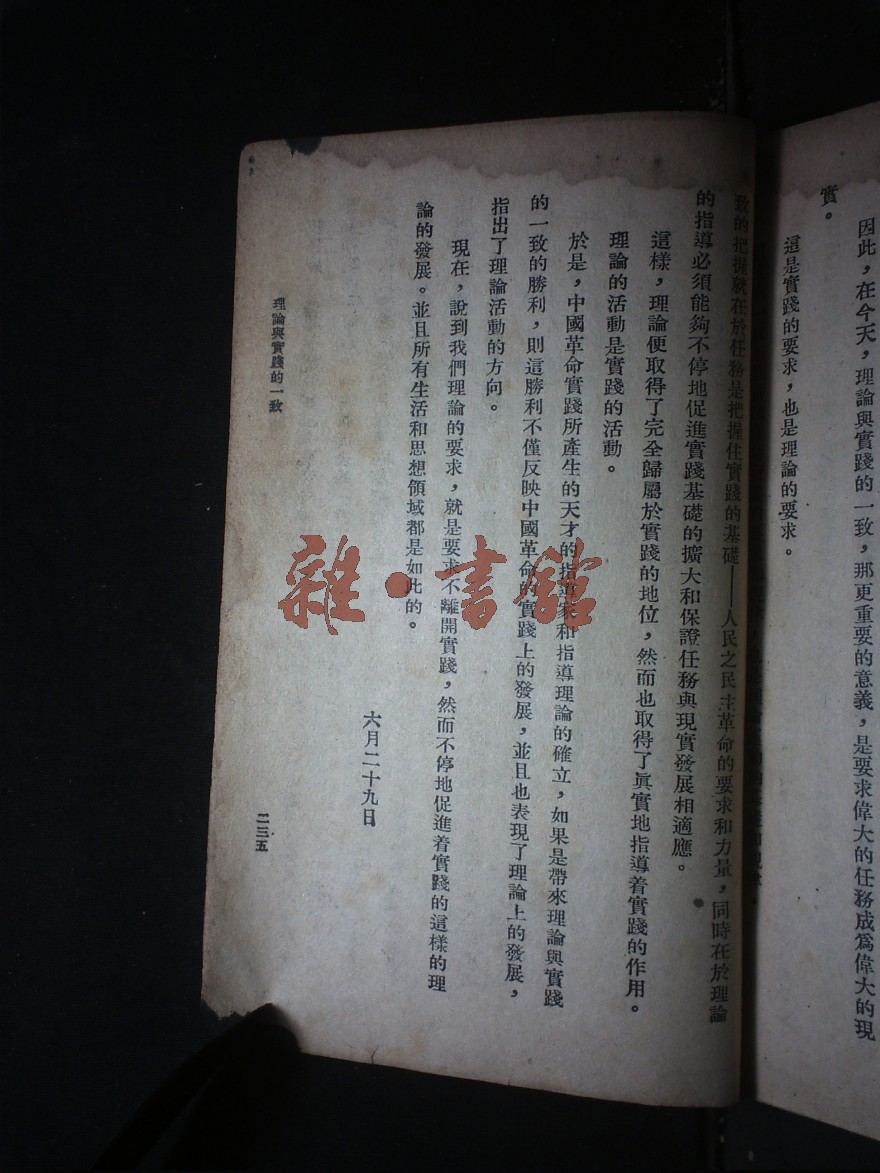 因此，在今天，理論與實踐的一致，那更重要的意義，是要求偉大的任務成爲偉大的現
實。
這是實踐的要求，也是理論的要求。
致的把握就在於任務是把握住實踐的基礎——人民之民主革命的要求和力量，同時在於理論
的指導必須能夠不停地促進實踐基礎的擴大和保證任務與現實發展相適應。
這樣，理論便取得了完全歸屬於實踐的地位，然而也取得了眞實地指導着實踐的作用。
理論的活動是實踐的活動。
於是，中國革命實踐所產生的天才的指導家和指導理論的確立，如果是帶來理論與實踐
的一致的勝利，則這勝利不僅反映中國革命的實踐上的發展，並且也表現了理論上的發展，
指出了理論活動的方向。
現在，說到我們理論的要求，就是要求不離開實踐，然而不停地促進着實踐的這樣的理
論的發展。並且所有生活和思想領域都是如此的。
六月二十九日
理論與實踐的一致
二三五
雜·書館